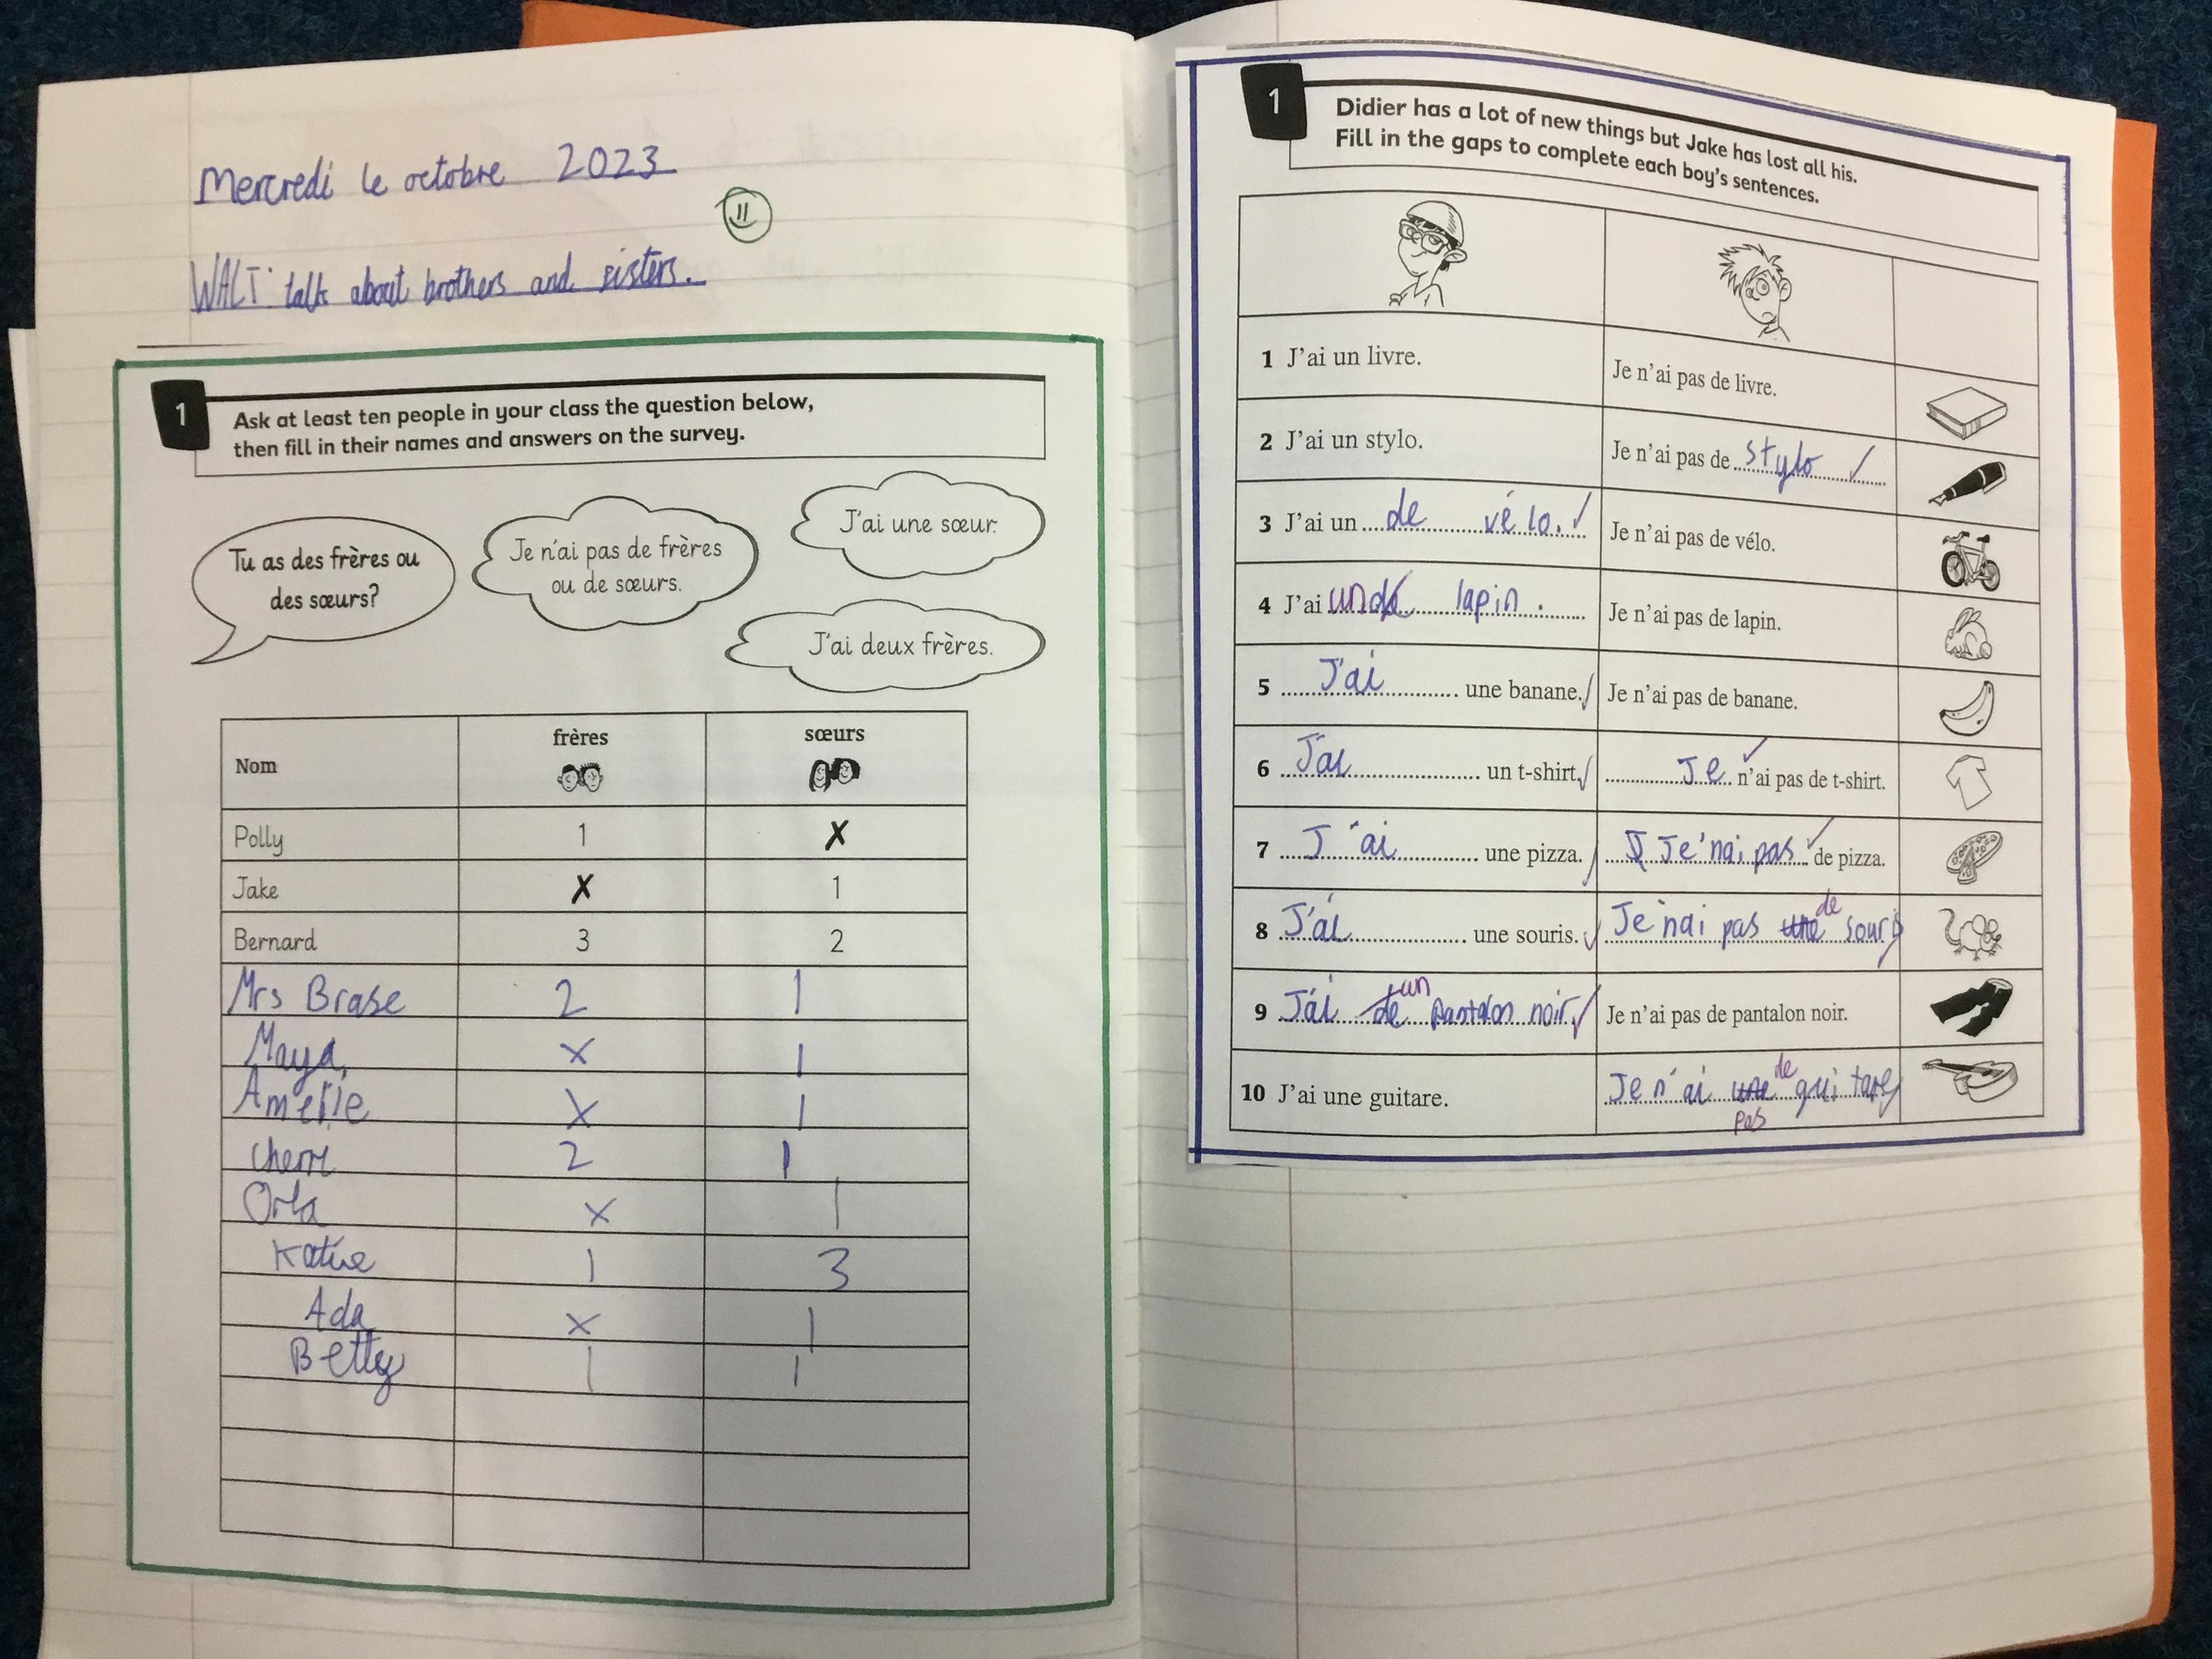 Mercredi le octobre 2023
WALT: talk about brothers and sisters.
1
Ask at least ten people in your class the question below,
then fill in their names and answers on the survey.
Tu as des frères ou
des sœurs?
Je n'ai pas de frères
ou de sœurs.
J'ai une sœur.
J'ai deux frères.
Nom frères sœurs
Polly 1 X
Jake X 1
Bernard 3 2
Mrs Brase 2 1
Maya, x 1
Amelie x 1
cherri 2 1
Orla x 1
Katie 1 3
Ada x 1
Betty 1 1
1
Didier has a lot of new things but Jake has lost all his.
Fill in the gaps to complete each boy's sentences.
1 J'ai un livre. Je n'ai pas de livre.
2 J'ai un stylo. Je n'ai pas de stylo ✓
3 J'ai un de vélo. ✓ Je n'ai pas de vélo.
4 J'ai un de lapin. Je n'ai pas de lapin.
5 J'ai une banane. ✓ Je n'ai pas de banane.
6 J'ai un t-shirt. ✓ Je n'ai pas de t-shirt. ✓
7 J'ai une pizza. ✓ Je'nai pas de pizza. ✓
8 J'ai une souris. ✓ Je'nai pas une de souris
9 J'ai de un pantalon noir. ✓ Je n'ai pas de pantalon noir.
10 J'ai une guitare. Je n'ai une de pas guitare